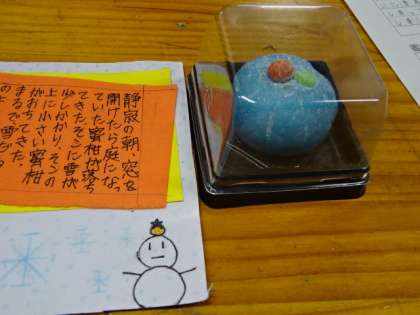 静寂の朝、窓を
開けたら庭になっ
ていた蜜柑が落ち
てきたそこに雪が
少しかかり、そこの
上に小さい蜜柑
がおちてきた。
まるで雪だる